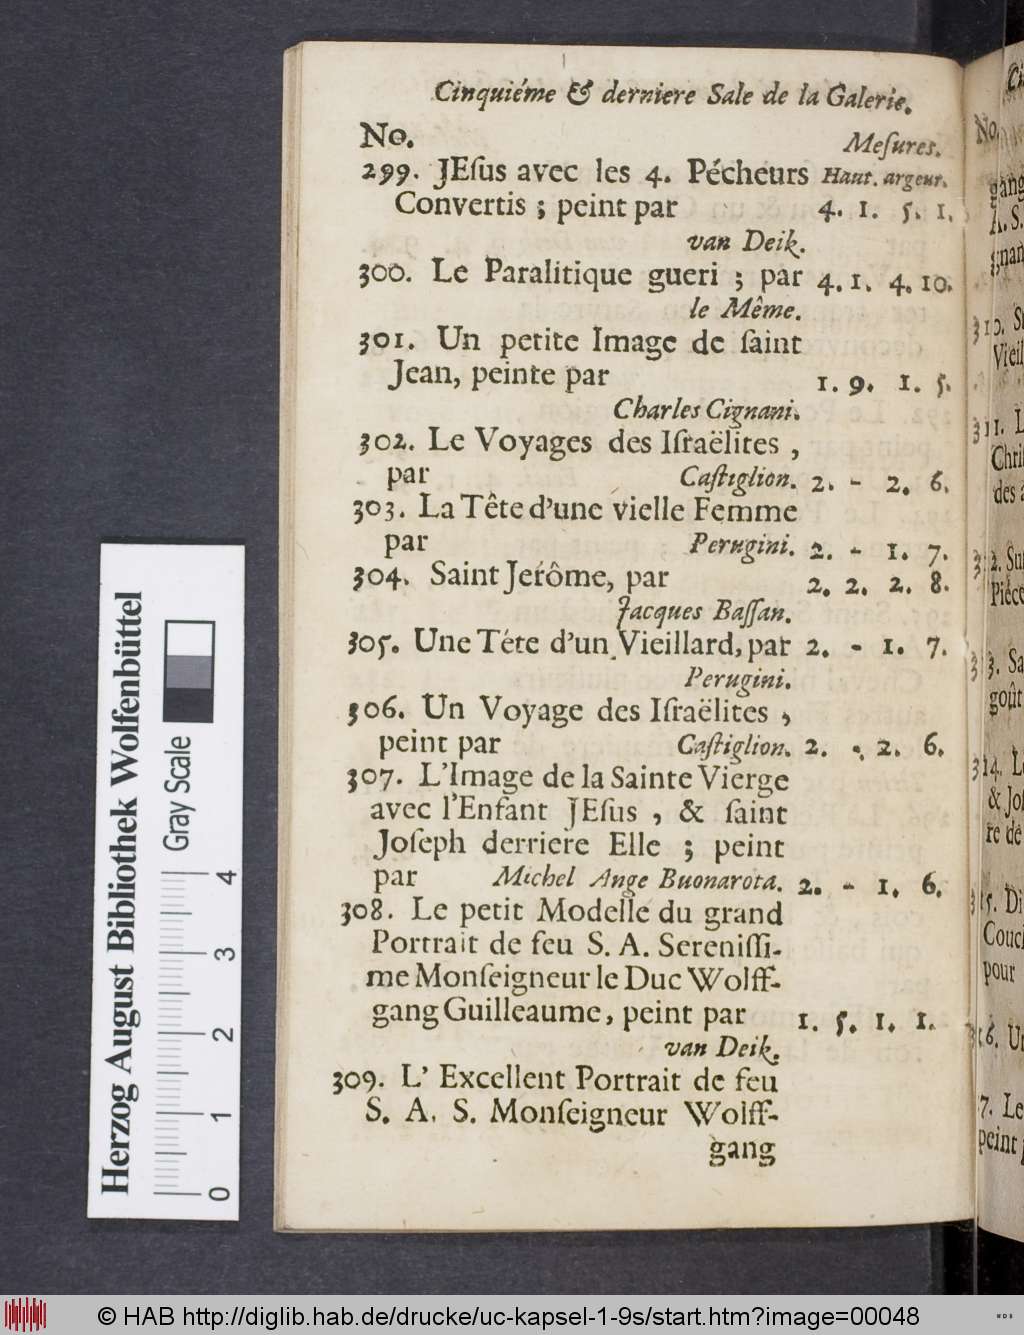 Cinquiéme & derniere Sale de la Galerie.
No. Meſures.
299. JEſus avec les 4. Pécheurs Haut. argeur.
Convertis ; peint par 4. 1. 5. 1.
van Deik.
300. Le Paralitique gueri ; par 4. 1. 4. 10.
le Même.
301. Un petite Image de ſaint
Jean, peinte par 1. 9. 1. 5.
Charles Cignani.
302. Le Voyages des Iſraëlites ,
par Caſtiglion. 2. - 2. 6.
303. La Tête d'une vielle Femme
par Perugini. 2. - 1. 7.
304. Saint Jerôme, par 2. 2. 2. 8.
Jacques Baſſan.
305. Une Téte d'un Vieillard, par 2. - 1. 7.
Perugini.
306. Un Voyage des Iſraëlites ,
peint par Caſtiglion. 2. - 2. 6.
307. L'Image de la Sainte Vierge
avec l'Enfant JEſus , & ſaint
Joſeph derriere Elle ; peint
par Michel Ange Buonarota. 2. - 1. 6.
308. Le petit Modelle du grand
Portrait de feu S. A. Sereniſſi-
me Monſeigneur le Duc Wolff-
gang Guilleaume, peint par 1. 5. 1. 1.
van Deik.
309. L' Excellent Portrait de feu
S. A. S. Monſeigneur Wolff-
gang
No.
gang
A. S.
310.
Vieil
311. L
Chri
des
312. Su
Piéce
313. Sa
goût
314. L
& Joſ
re de
315. Di
Couc
pour
316. U
7. Le
peint
Herzog August Bibliothek Wolfenbüttel
Gray Scale
0 1 2 3 4
© HAB http://diglib.hab.de/drucke/uc-kapsel-1-9s/start.htm?image=00048